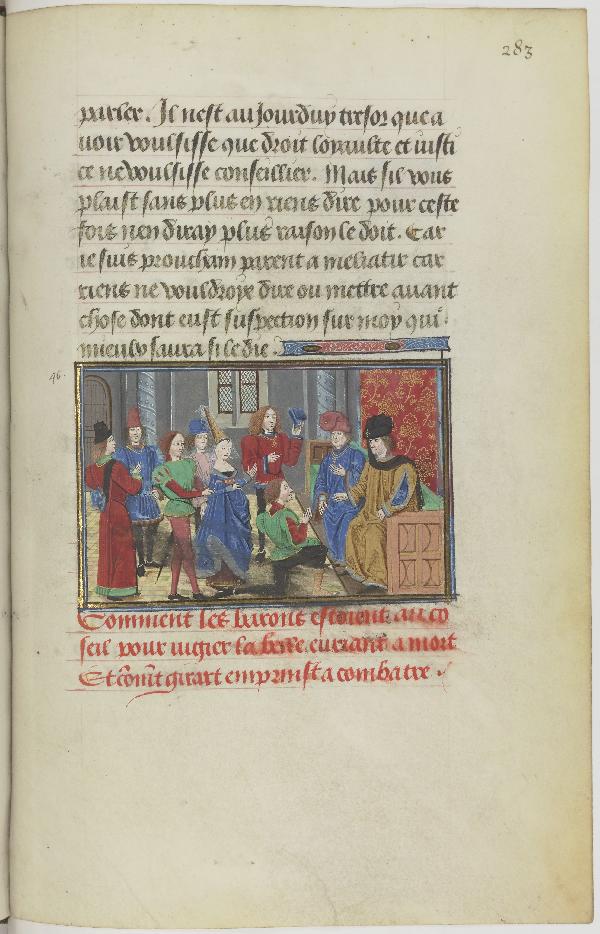 283
parler. Il nest auJourduy tresor que a
uoir voulsisse que droit loyaulte et iusti
ce ne voulsisse conseillier. Mais sil vous
plaist sans plus en riens dire pour ceste
fois nen diray plus raison le doit. Car
ie suis prouchain parent a meliatir car
riens ne vouldroye dire ou mettre auant
chose dont eust suspection sur moy qui
mieulx saura si le die.
96.
Comment les barons estoient au co
seil pour iugier la belle euriant a mort
Et cōmt girart emprinst a combatre.